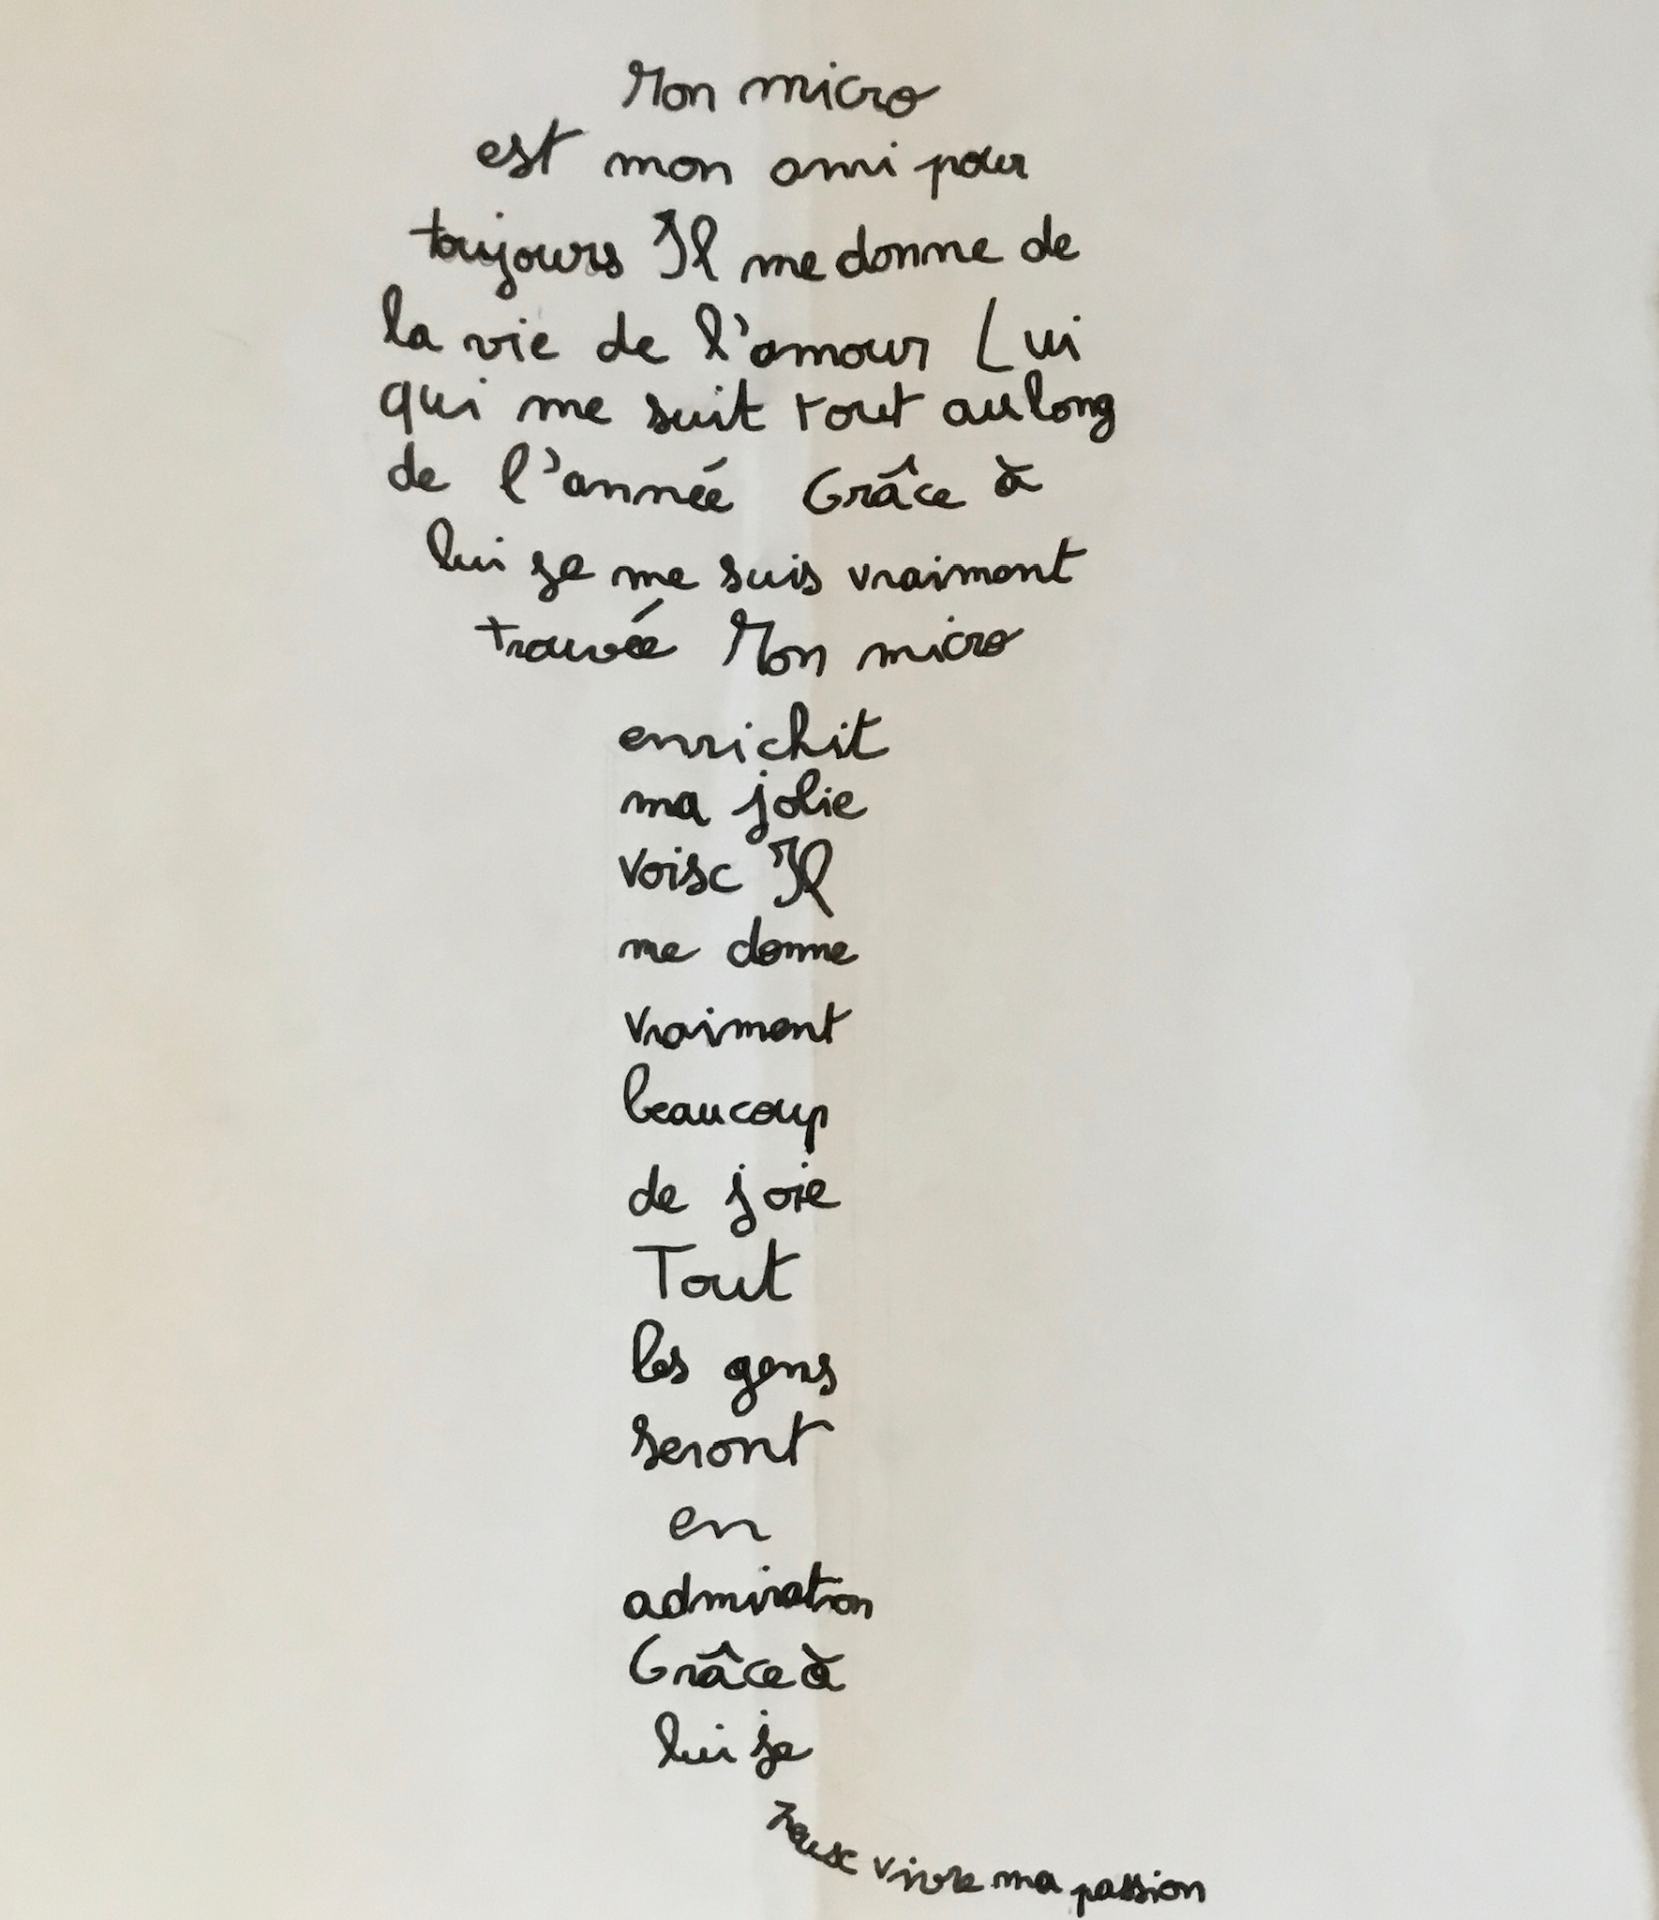 Mon micro
est mon ami pour
toujours Il me donne de
la vie de l'amour Lui
qui me suit tout au long
de l'année Grâce à
lui je me suis vraiment
trouvée Mon micro
enrichit
ma jolie
voisc Il
me donne
vraiment
beaucoup
de joie
Tout
les gens
seront
en
admiration
Grâce à
lui je
vivre ma passion